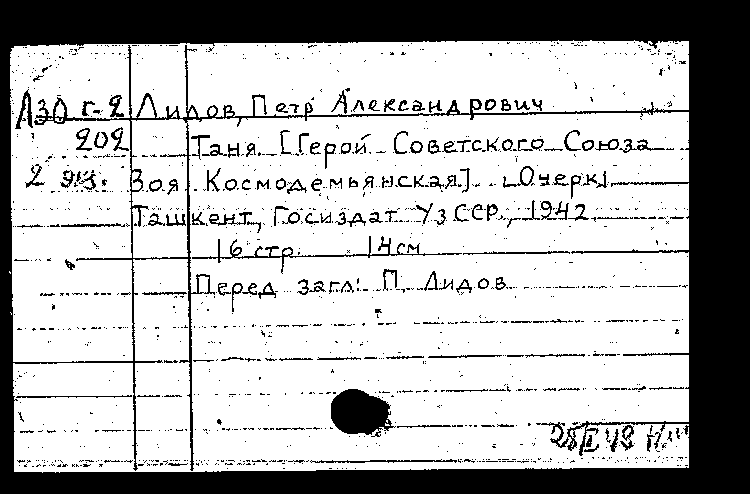 Л30 г-2 Лидов, Петр Александрович
202 Таня [Герой Советского Союза
2 экз. Зоя Космодемьянская]. [Очерк].
Ташкент, Госиздат УзССР, 1942
16 стр. 14 см
Перед загл: П. Лидов